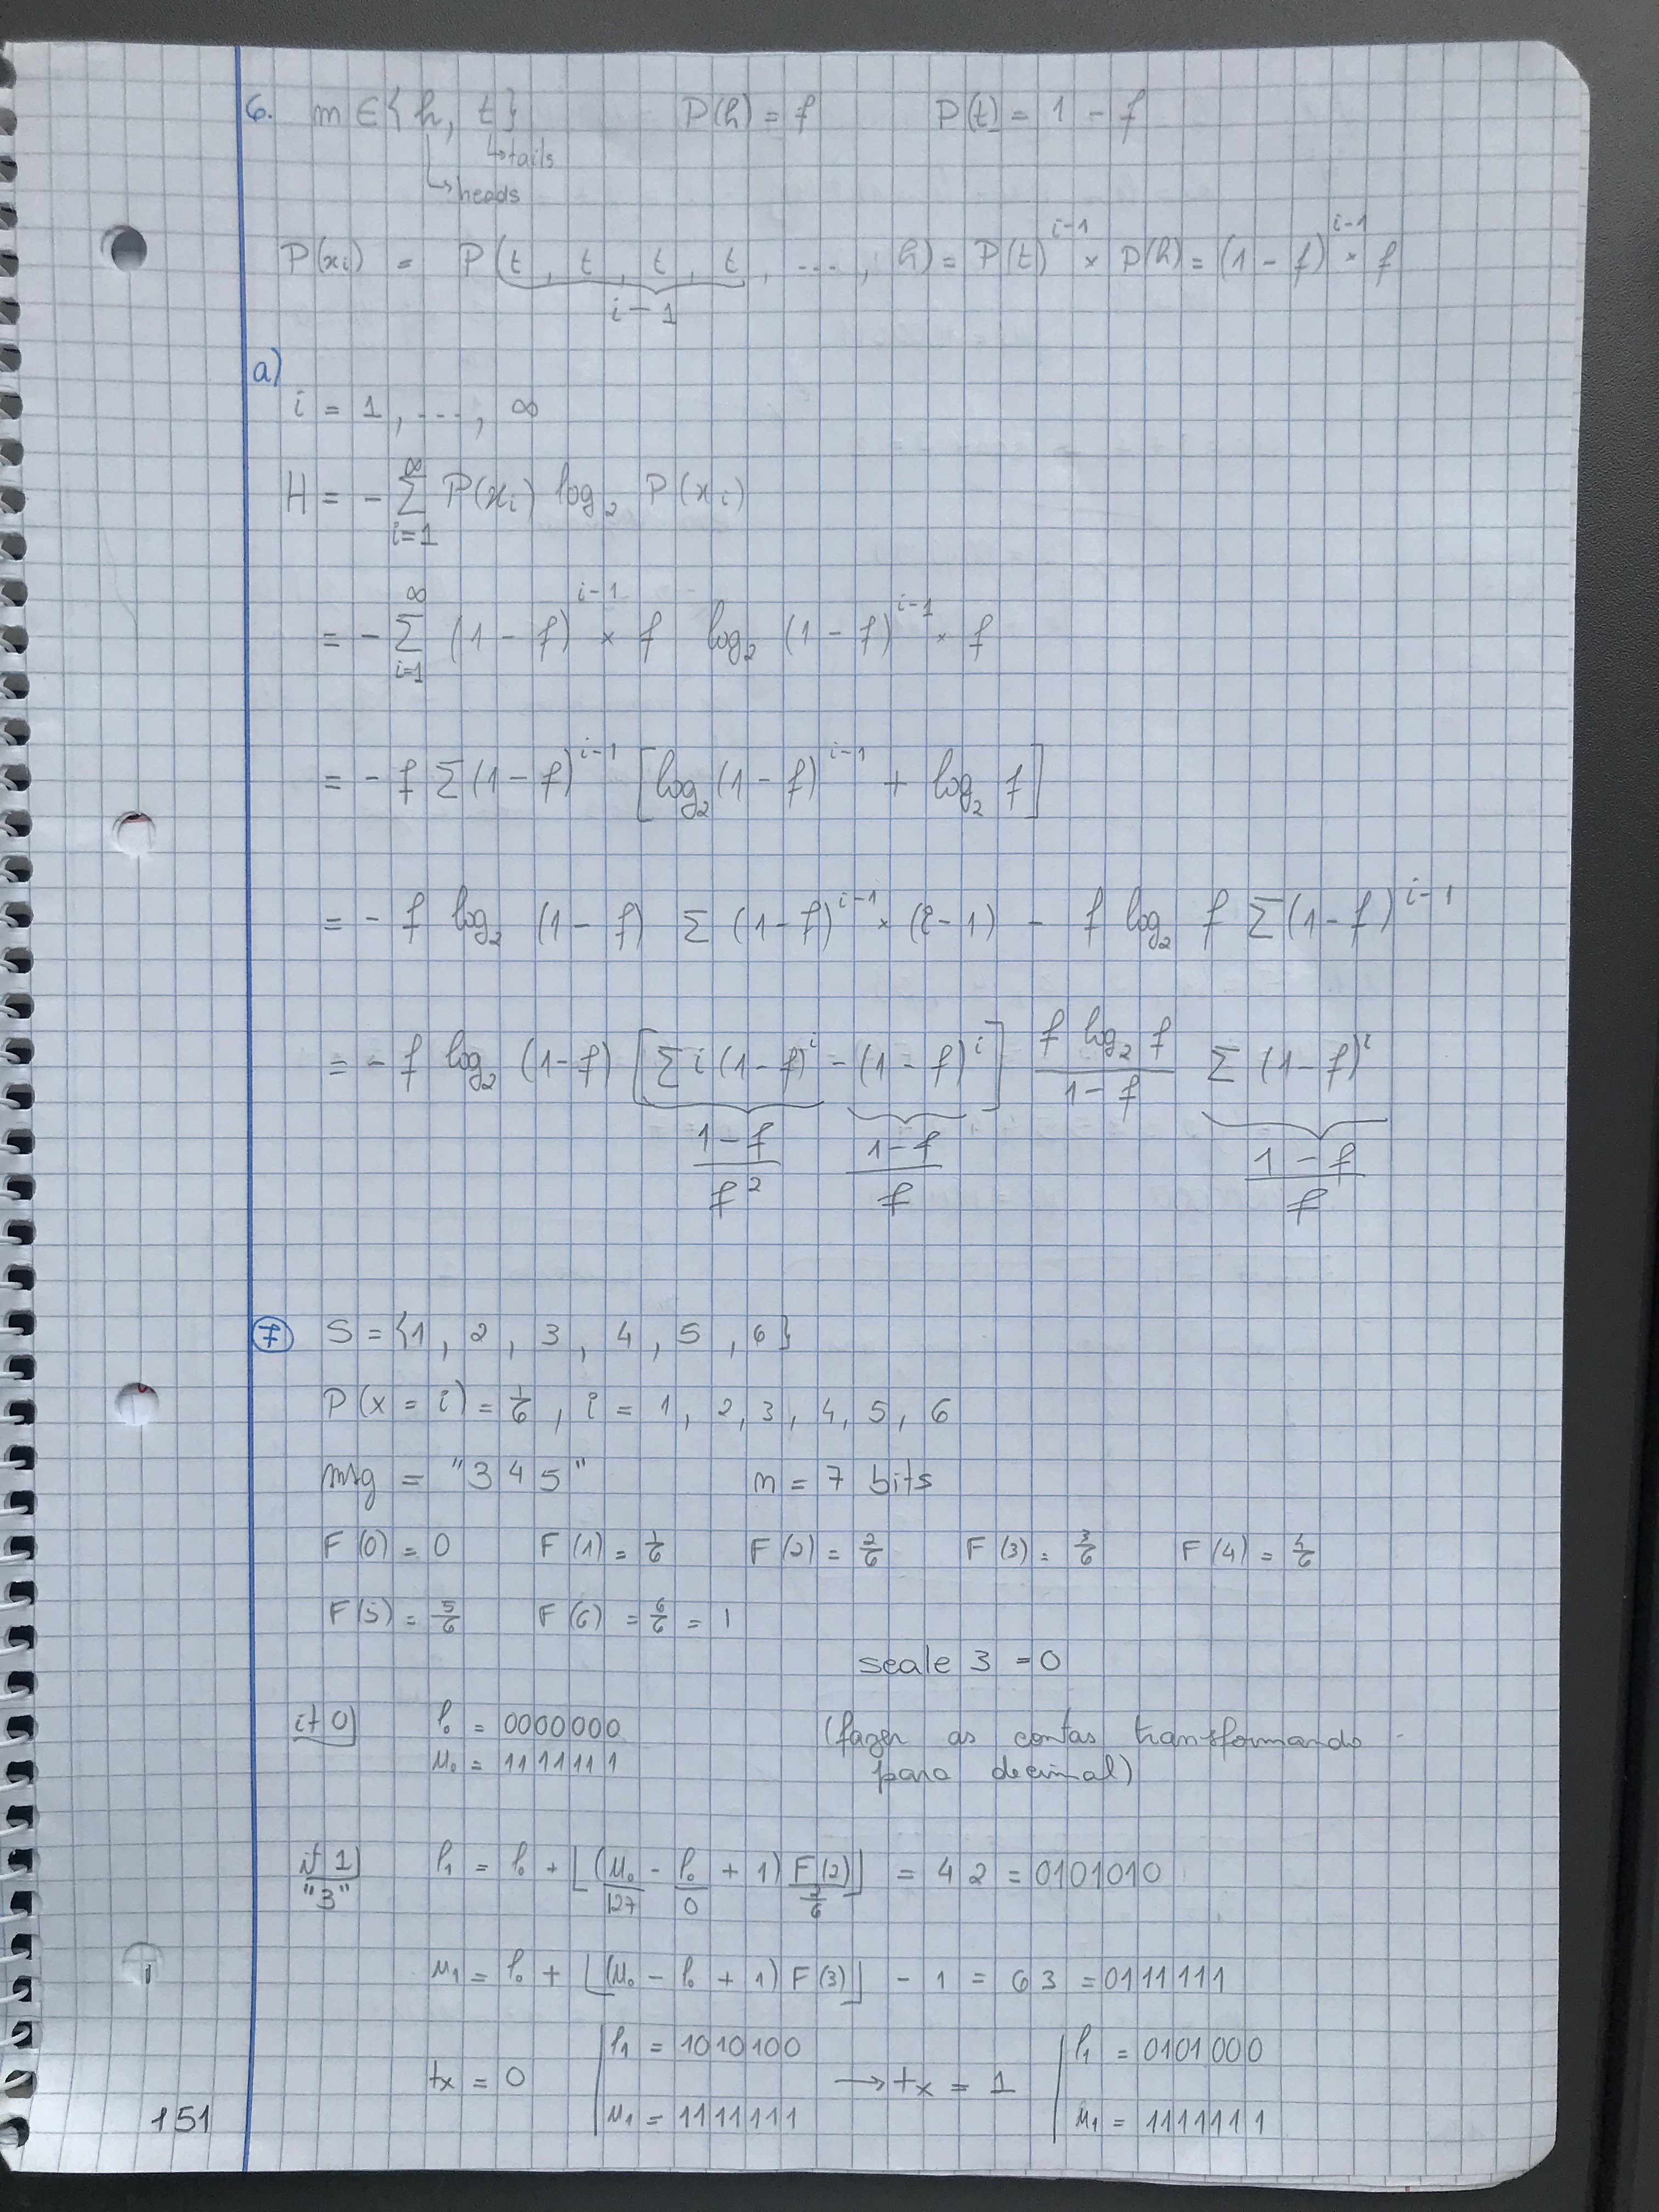 6. m ∈ {h, t} P(h) = f P(t) = 1 - f
↳ tails
↳ heads
P(xi) = P(t, t, t, t, ..., h) = P(t)^(i-1) × P(h) = (1 - f)^(i-1) × f
i - 1
a)
i = 1, ..., ∞
H = - ∑_(i=1)^∞ P(xi) log₂ P(xi)
= - ∑_(i=1)^∞ (1 - f)^(i-1) × f log₂ (1 - f)^(i-1) × f
= - f ∑ (1 - f)^(i-1) [log₂ (1 - f)^(i-1) + log₂ f]
= - f log₂ (1 - f) ∑ (1 - f)^(i-1) × (i - 1) - f log₂ f ∑ (1 - f)^(i-1)
= - f log₂ (1 - f) [∑ i (1 - f)^i - (1 - f)^i] (f log₂ f)/(1 - f) ∑ (1 - f)^i
(1 - f)/f² (1 - f)/f (1 - f)/f
7 S = {1, 2, 3, 4, 5, 6}
P(x = i) = 1/6, i = 1, 2, 3, 4, 5, 6
msg = "345" m = 7 bits
F(0) = 0 F(1) = 1/6 F(2) = 2/6 F(3) = 3/6 F(4) = 4/6
F(5) = 5/6 F(6) = 6/6 = 1
scale 3 = 0
it 0 l₀ = 0000000 (fazer as contas transformando
u₀ = 1111111 para decimal)
it 1 l₁ = l₀ + ⌊(u₀ - l₀ + 1) F(2)⌋ = 42 = 0101010
"3" 127 0 2/6
u₁ = l₀ + ⌊(u₀ - l₀ + 1) F(3)⌋ - 1 = 63 = 0111111
l₁ = 1010100 l₁ = 0101000
tx = 0 → tx = 1
u₁ = 1111111 u₁ = 1111111
151